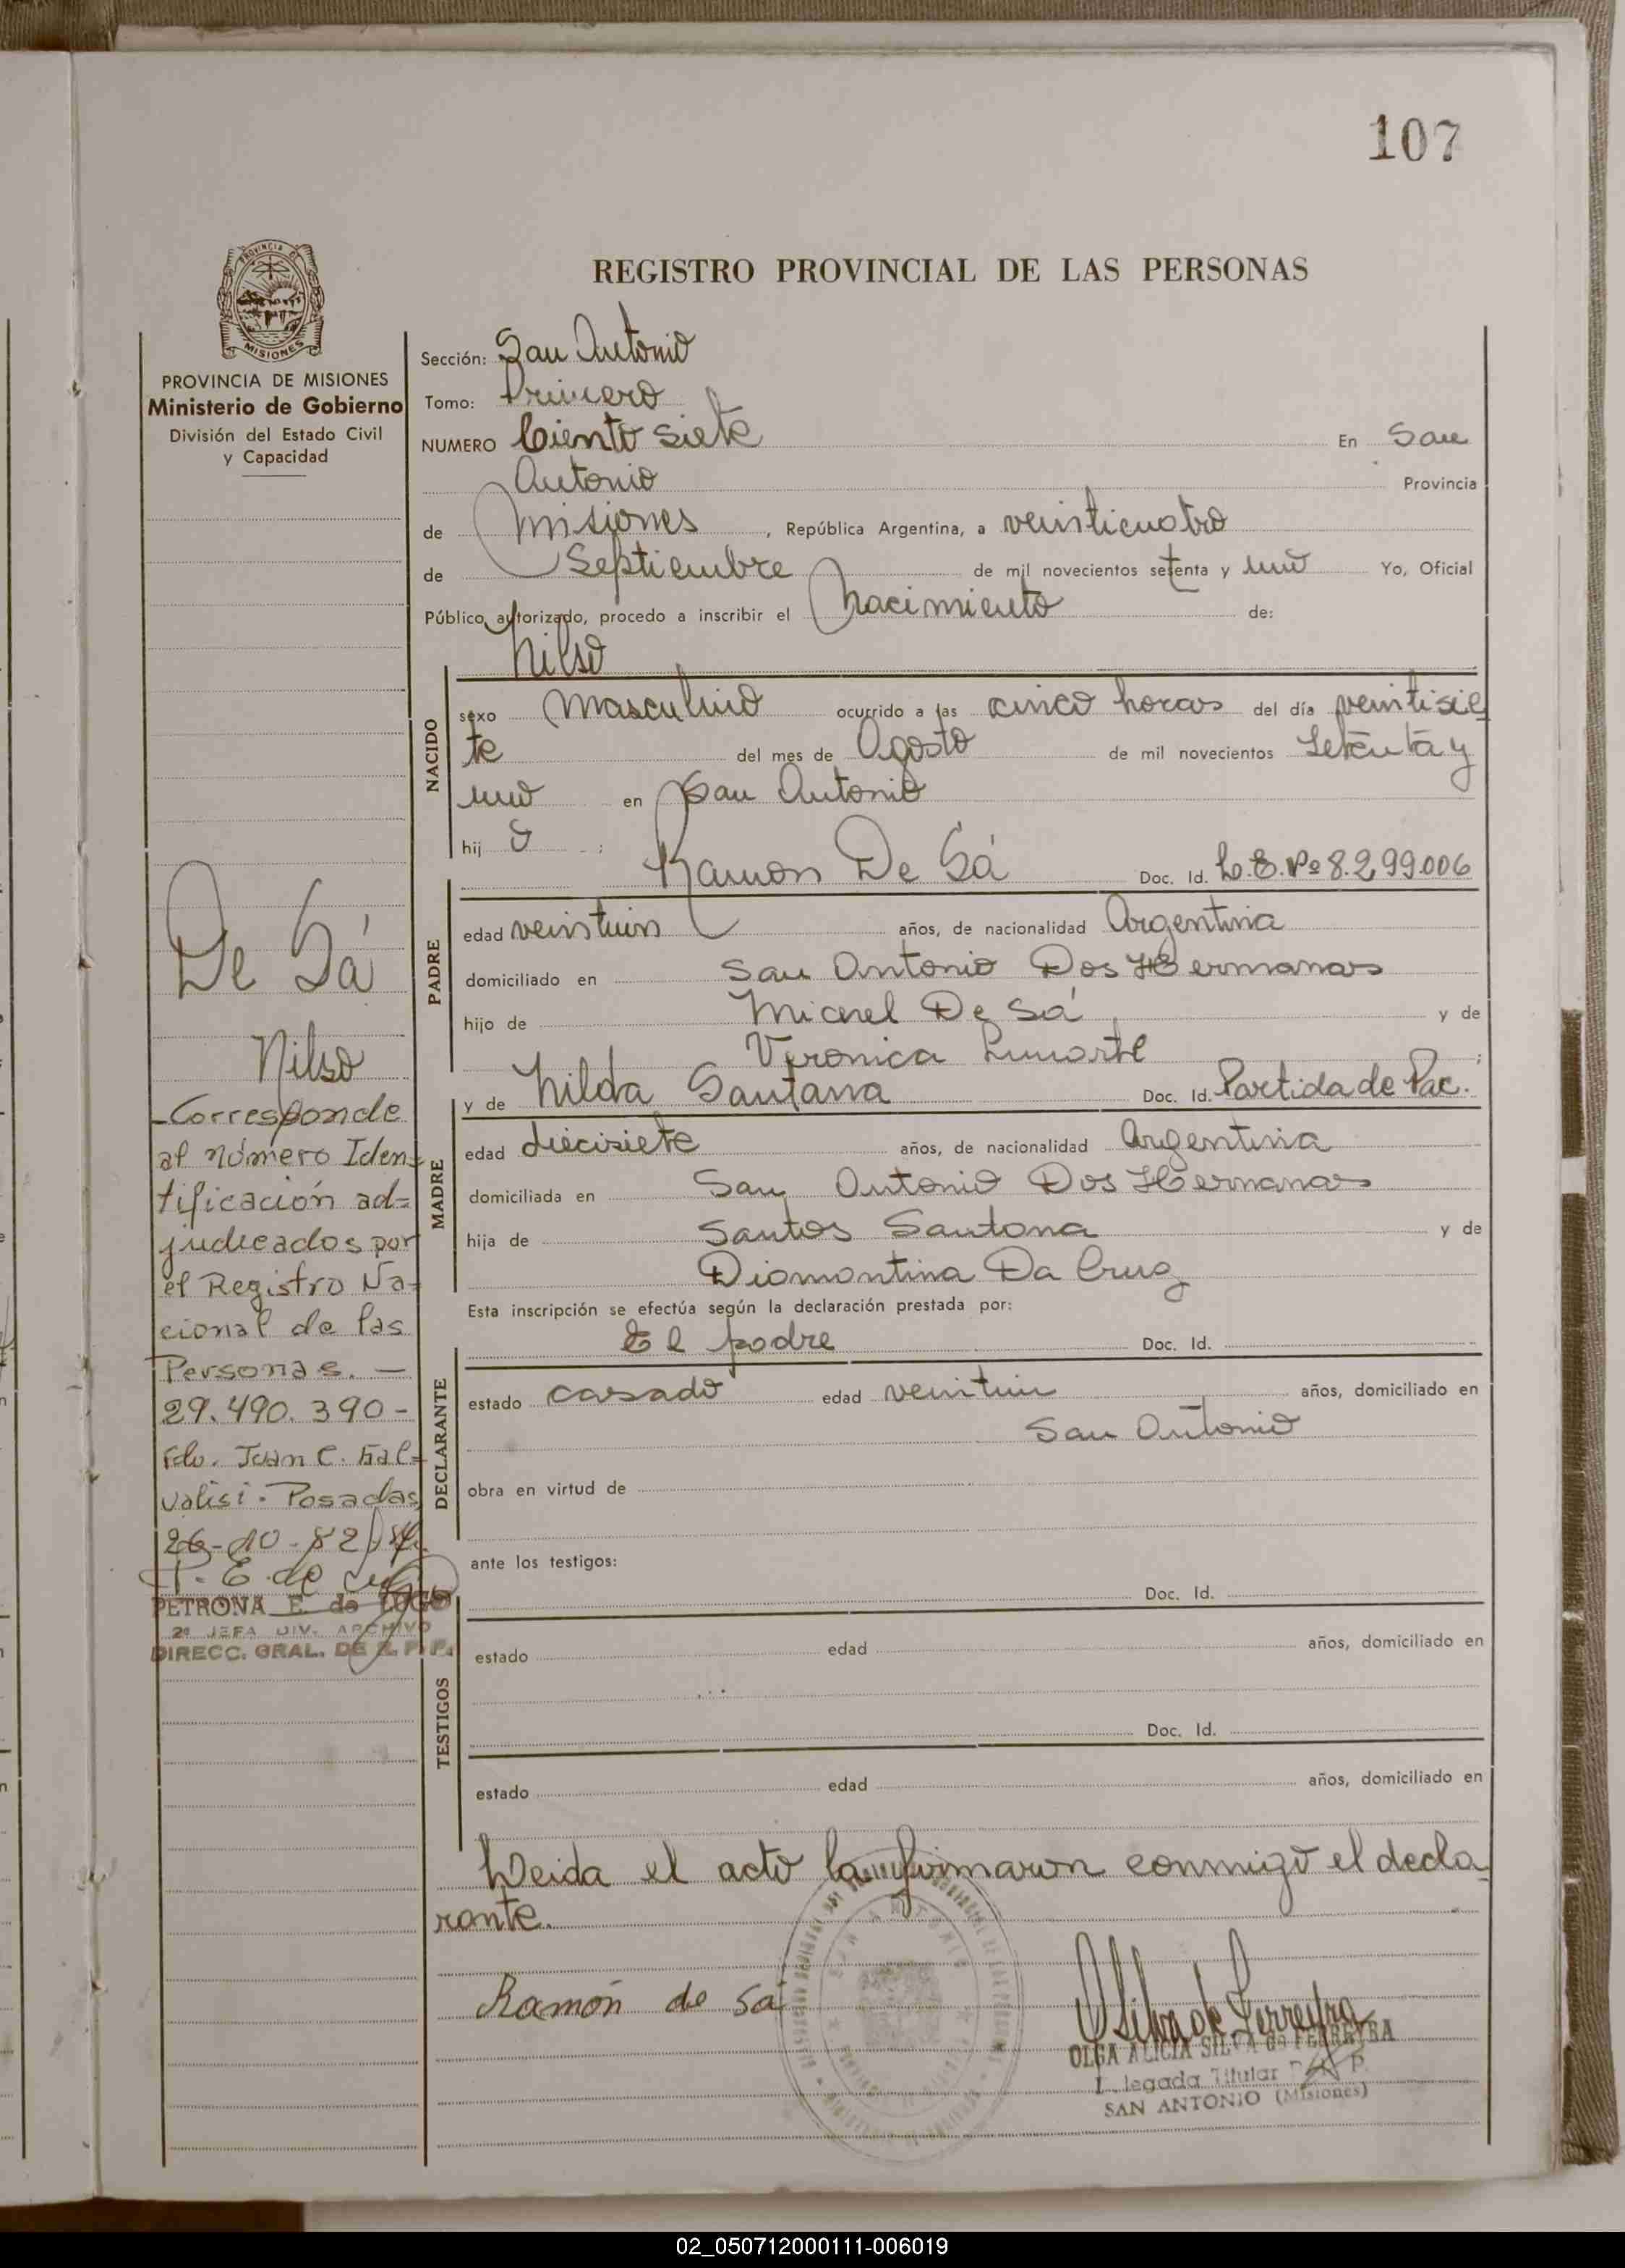 107
REGISTRO PROVINCIAL DE LAS PERSONAS
PROVINCIA DE MISIONES
MISIONES
PROVINCIA DE MISIONES
Ministerio de Gobierno
División del Estado Civil
y Capacidad
De Sá
Nilso
-Corresponde
al número Iden-
tificación ad=
judicados por
el Registro Na-
cional de las
Personas. —
29.490.390-
Fdo. Juan C. Gal-
valisi. Posadas
26-10-82
P. E. de
PETRONA E. de LUGO
2º JEFA DIV. ARCHIVO
DIRECC. GRAL. DE R. P. P.
Sección: San Antonio
Tomo: Primero
NUMERO Ciento siete En San
Antonio Provincia
de Misiones, República Argentina, a veinticuatro
de Septiembre de mil novecientos setenta y uno Yo, Oficial
Público autorizado, procedo a inscribir el Nacimiento de:
Nilso
NACIDO
sexo Masculino ocurrido a las cinco horas del día veintisie
te del mes de Agosto de mil novecientos setenta y
uno en San Antonio
hij o ;
Ramon De Sá Doc. Id. L.E.Nº 8.299.006
PADRE
edad veintiun años, de nacionalidad Argentina
domiciliado en San Antonio Dos Hermanas
hijo de Micael De Sá y de
Veronica ;
y de Nilda Santana Doc. Id. Partida de Nac.
MADRE
edad diecisiete años, de nacionalidad Argentina
domiciliada en San Antonio Dos Hermanas
hija de Santos Santana y de
Diamantina Da Cruz
Esta inscripción se efectúa según la declaración prestada por:
El padre Doc. Id.
DECLARANTE
estado casado edad veintiun años, domiciliado en
San Antonio
obra en virtud de
ante los testigos:
Doc. Id.
TESTIGOS
estado edad años, domiciliado en
Doc. Id.
estado edad años, domiciliado en
Leida el acto la firmaron conmigo el decla
rante.
Ramón de Sá
OSilva de Ferreyra
OLGA ALICIA SILVA de FERREYRA
Titular
SAN ANTONIO (Misiones)
02_050712000111-006019